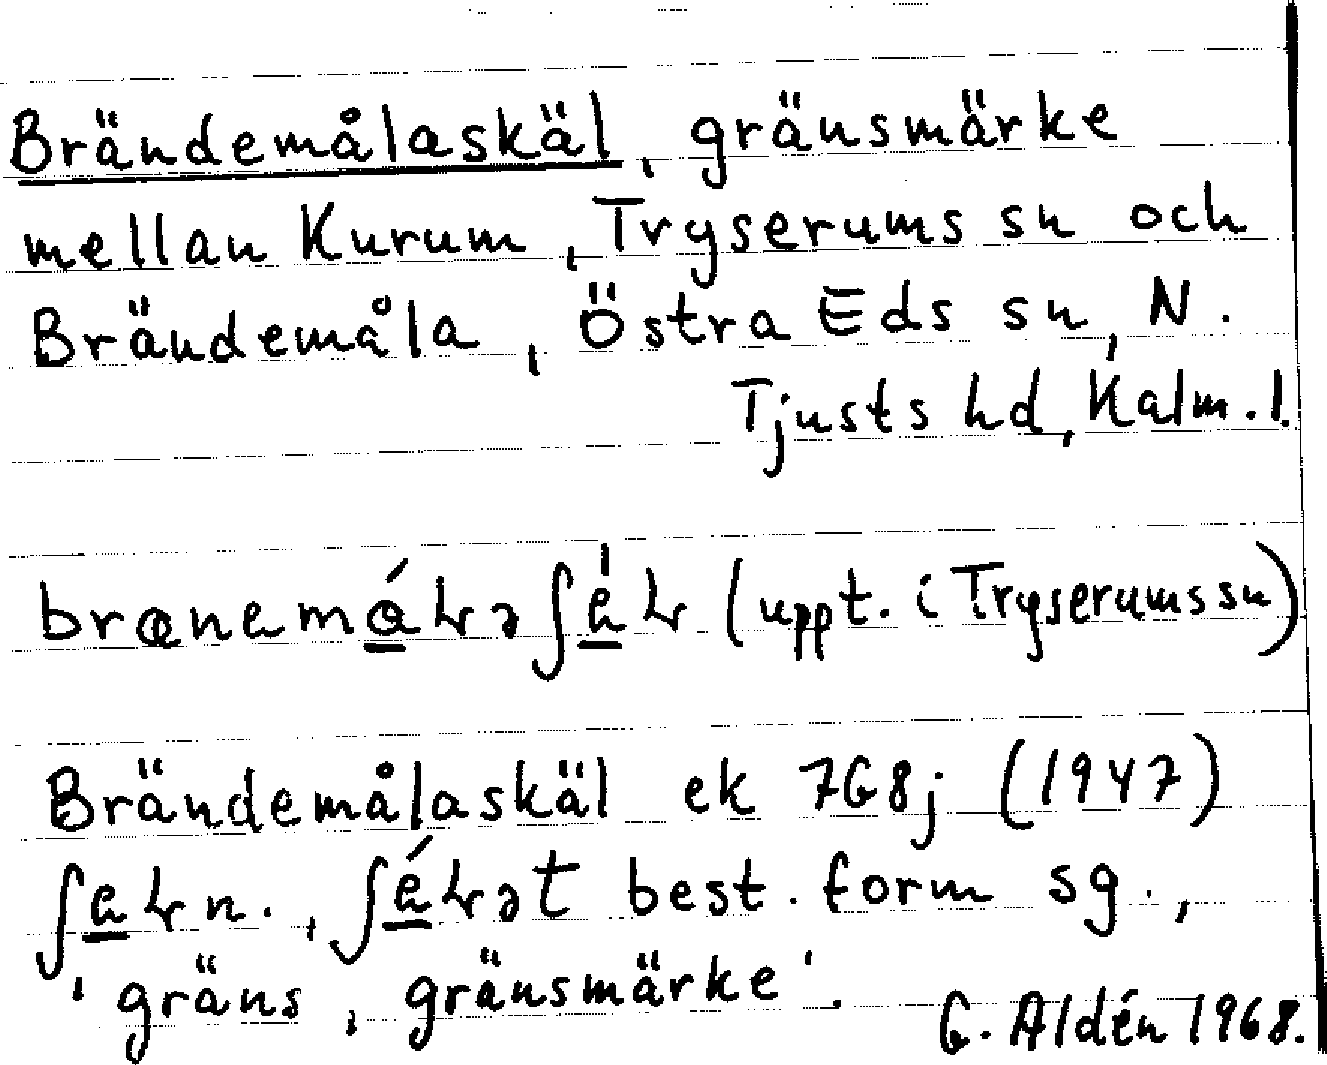 Brändemålaskäl, gränsmärke
mellan Kurum, Tryserums sn och
Brändemåla, Östra Eds sn, N.
Tjusts hd, Kalm. l.
(uppt. i Tryserums sn)
Brändemålaskäl ek 7G8j (1947)
n., best. form sg.,
'gräns, gränsmärke'.
G. Aldén 1968.